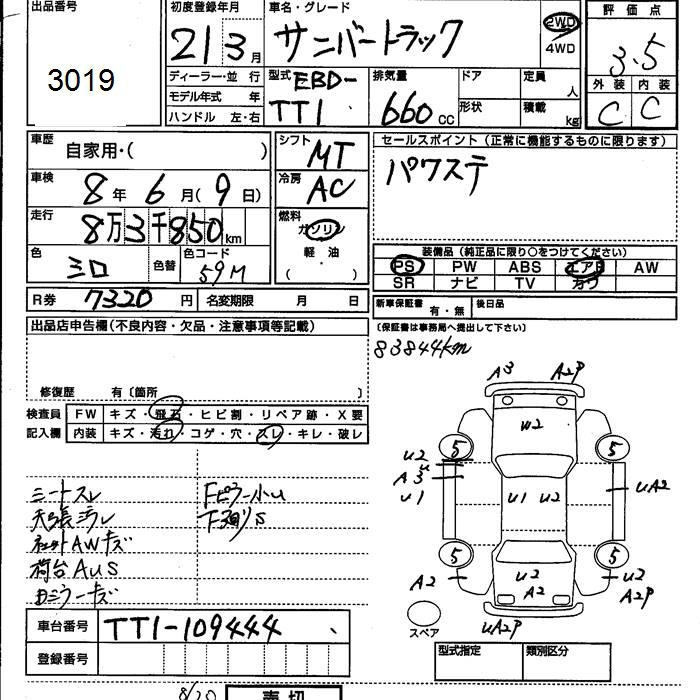 出品番号
3019
初度登録年月
21 3月
車名・グレード
サニバートラック
2WD
4WD
評価点
3.5
外装 内装
C C
ディーラー・並 行
モデル年式 年
ハンドル 左・右
型式 EBD-
TT1
排気量
660cc
ドア
形状
定員
人
積載
kg
車歴
自家用・( )
車検
8年 6月( 9日)
走行
8万3千850km
色
シロ
色替
色コード
59M
R券 7320円
名変期限 月 日
シフト
MT
冷房
AC
燃料
ガソリン
軽油
( )
セールスポイント (正常に機能するものに限ります)
パワステ
装備品 (純正品に限り○をつけてください)
PS PW ABS エアB AW
SR ナビ TV カワ
新車保証書 有・無
後日品
〔保証書は事務局へ提出して下さい〕
83844km
出品店申告欄(不良内容・欠品・注意事項等記載)
修復歴 有〔箇所 〕
検査員
記入欄
FW キズ・飛石・ヒビ割・リペア跡・X要
内装 キズ・汚れ・コゲ・穴・スレ・キレ・破レ
シートスレ
荷台AUS
A3 A2P
W2
U2
U
A3
U1
5 5
U1 U2
UA2
5 5
A2
U2
A2
U2
A2P
UA2P
スペア
車台番号
TT1-109444
登録番号
型式指定
類別区分
8/20
売切